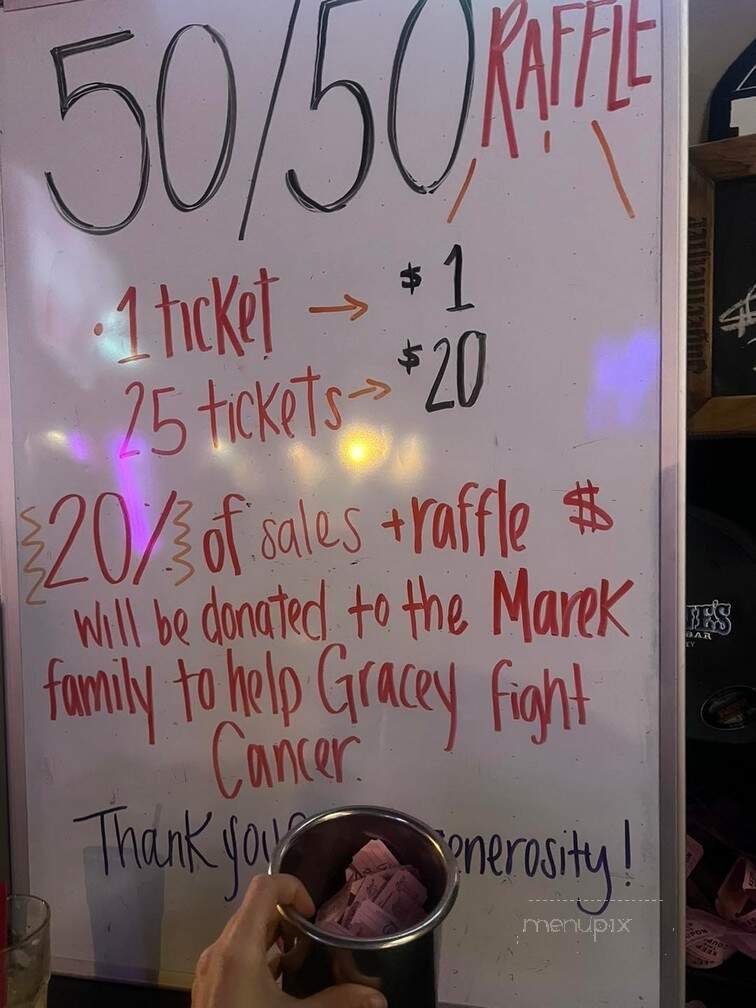 50/50 RAFFLE
• 1 ticket → $1
25 tickets → $20
20% of sales + raffle $
will be donated to the Marek
family to help Gracey fight
Cancer.
Thank you
menupix